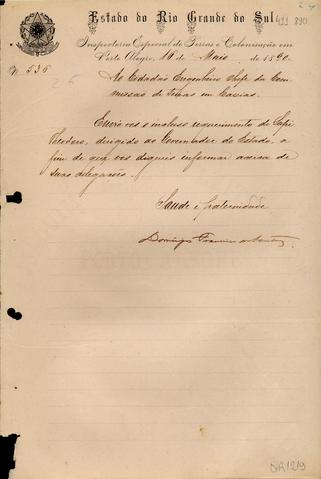 Estado do Rio Grande do Sul
Inspectoria Especial de Terras e Colonisação em
Porto Alegre, 16 de Maio de 1890.
N. 536
Ao Cidadão Engenheiro Chefe da Com
missão de terras em Caxias.
Envio-vos o incluso requerimento de
Theodoro, dirigido ao Governador do Estado, a
fim de que vos digneis informar acerca de
suas allegações.
Saude e fraternidade
Domingos Francisco dos Santos